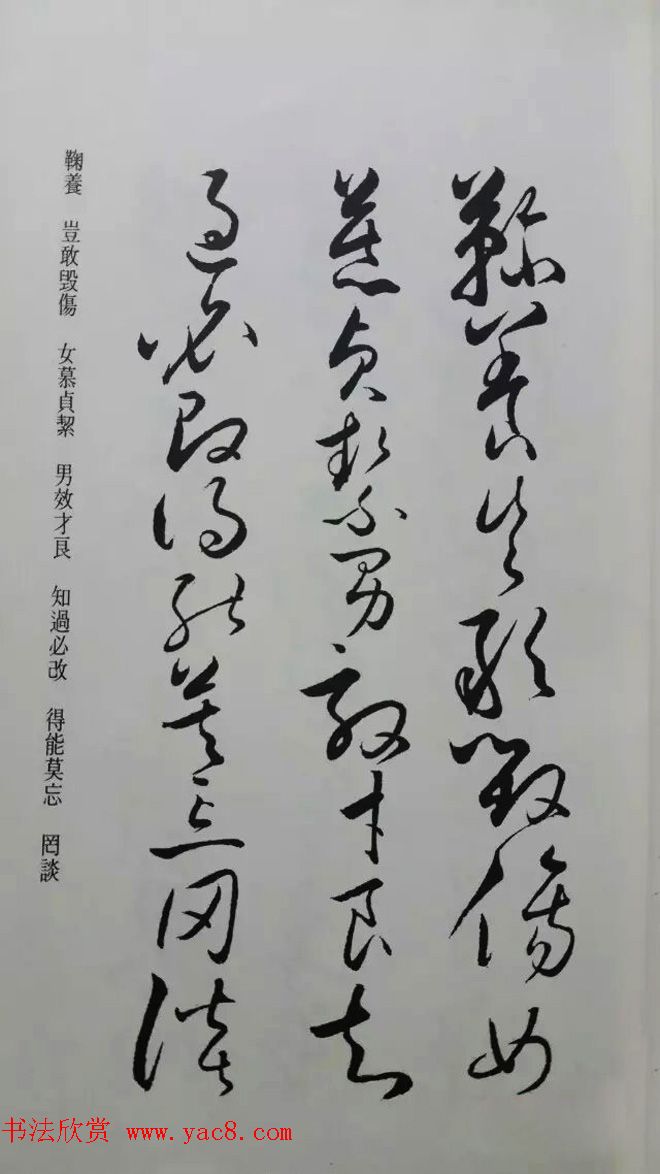 鞠養豈敢毀傷女
慕貞絜男效才良知
過必改得能莫忘罔談
鞠養 豈敢毀傷 女慕貞絜 男效才良 知過必改 得能莫忘 罔談
书法欣赏 www.yac8.com